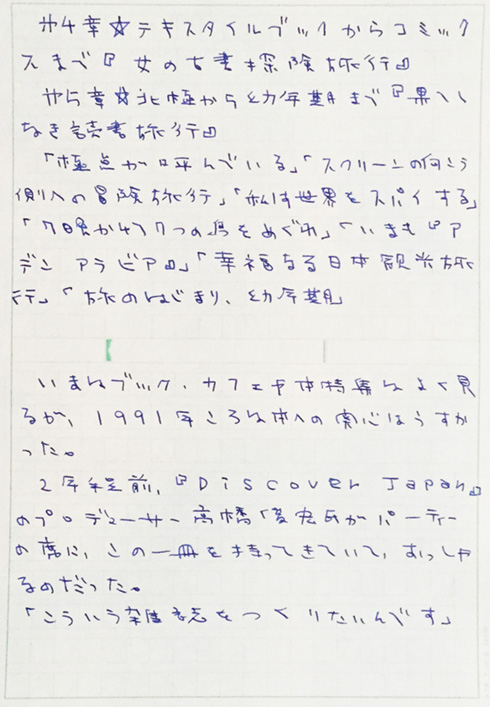 第4章☆テキスタイルブックからコミック
スまで『女の古書探険旅行』
第5章☆北極から幼年期まで『果てし
なき読書旅行』
「極点が呼んでいる」「スクリーンの向こう
側への冒険旅行」「私は世界をスパイする」
「7日間で47つの島をめぐれ」「いまも『ア
デン アラビア』」「幸福なる日本観光旅
行」「旅のはじまり、幼年期」
いまはブック・カフェや本特集はよく見
るが、1991年ころは本への関心はうすか
った。
2年程前、『Discover Japan』
のプロデューサー高橋俊宏氏がパーティー
の席に、この一冊を持ってきていて、おっしゃ
るのだった。
「こういう雑誌をつくりたいんです」